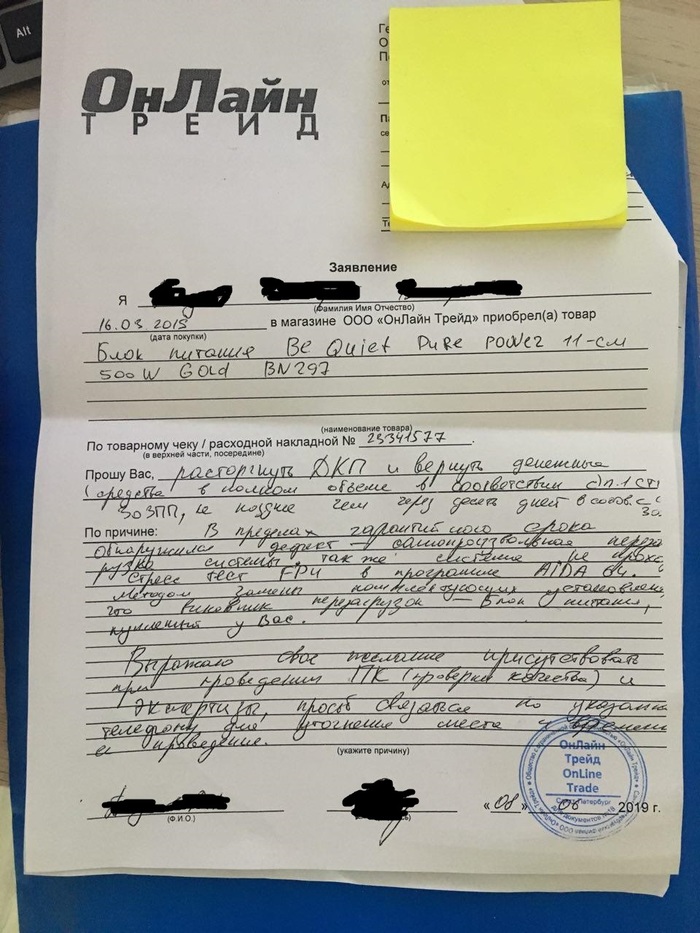 Alt
ОнЛайн
ТРЕЙД
Заявление
Я
(Фамилия Имя Отчество)
16.03.2019 в магазине ООО «ОнЛайн Трейд» приобрел(а) товар
(дата покупки)
Блок питания Be Quiet Pure Power 11-см
500W Gold BN297
(наименование товара)
По товарному чеку / расходной накладной № 29341577
(в верхней части, посередине)
Прошу Вас, расторгнуть ДКП и вернуть денежные
средства в полном объеме в соответствии с п.1 ст
ЗоЗПП, не позднее чем через десять дней в соотв. с
По причине: В пределах гарантийного срока
Обнаружился дефект – самопроизвольная перезаг
рузка системы, так же система не проход
стресс тест FPU в программе AIDA 64.
Методом замены комплектующих установлено
что виновник перезагрузок – Блок питания,
купленный у Вас.
Выражаю свое желание присутствовать
при проведении ПК (проверки качества) и
экспертизы, просьба связаться по указанно
телефону для уточнения места и времени
ее проведение.
(укажите причину)
«08» 06 2019 г.
(Ф.И.О.)
ОнЛайн
Трейд
OnLine
Trade
Санкт-Петербург